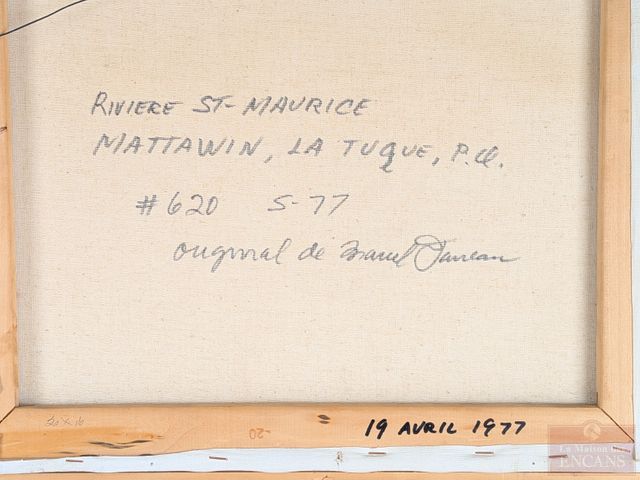 RIVIERE ST-MAURICE
MATTAWIN, LA TUQUE, P.Q.
#620 S-77
original de Marcel
19 AVRIL 1977
-20
La Maison des
ENCANS